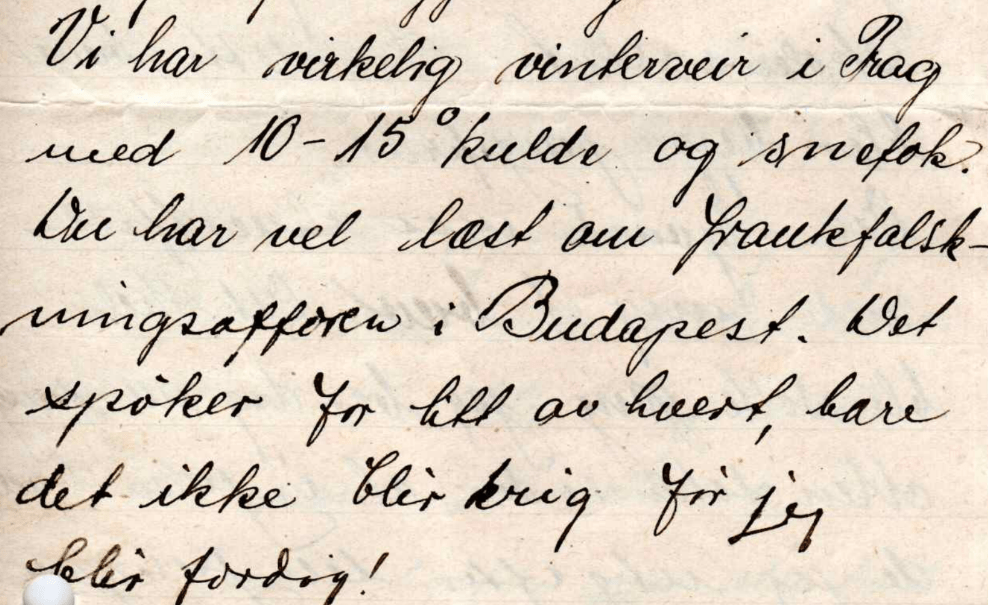 Vi har virkelig vinterveir i Prag
med 10-15° kulde og snefok.
Du har vel læst om frankfalsk-
ningsaffæren i Budapest. Det
spøker for litt av hvert, bare
det ikke blir krig før jeg
blir færdig!